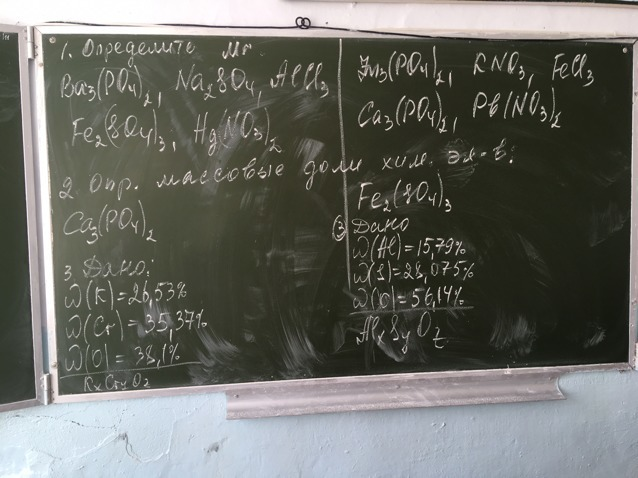 1. Определите Mr
Ba₃(PO₄)₂, Na₂SO₄, AlCl₃
Fe₂(SO₄)₃, Hg(NO₃)₂
2 Опр. массовые доли хим. эл-в:
Ca₃(PO₄)₂
3 Дано:
W(K)=26,53%
W(Cr)=35,37%
W(O)=38,1%
KxCryOz
Zn₃(PO₄)₂, KNO₃, FeCl₃
Ca₃(PO₄)₂, Pb(NO₃)₂
Fe₂(SO₄)₃
3 Дано
W(Al)=15,79%
W(S)=28,075%
W(O)=56,14%
AlxSyOz